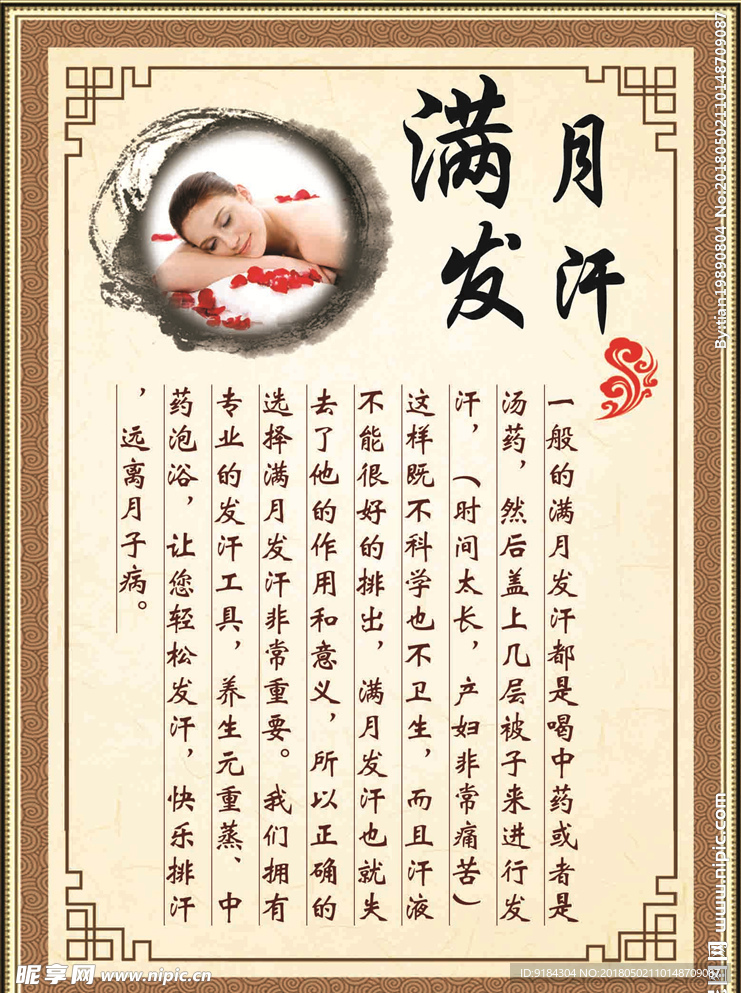 满月
发汗
一般的满月发汗都是喝中药或者是
汤药，然后盖上几层被子来进行发
汗，（时间太长，产妇非常痛苦）
这样既不科学也不卫生，而且汗液
不能很好的排出，满月发汗也就失
去了他的作用和意义，所以正确的
选择满月发汗非常重要。我们拥有
专业的发汗工具，养生元重蒸、中
药泡浴，让您轻松发汗，快乐排汗
，远离月子病。
By:tian19890804 No:20180502110148709087
昵享网 www.nipic.cn
ID:9184304 NO:20180502110148709087
网 www.nipic.com